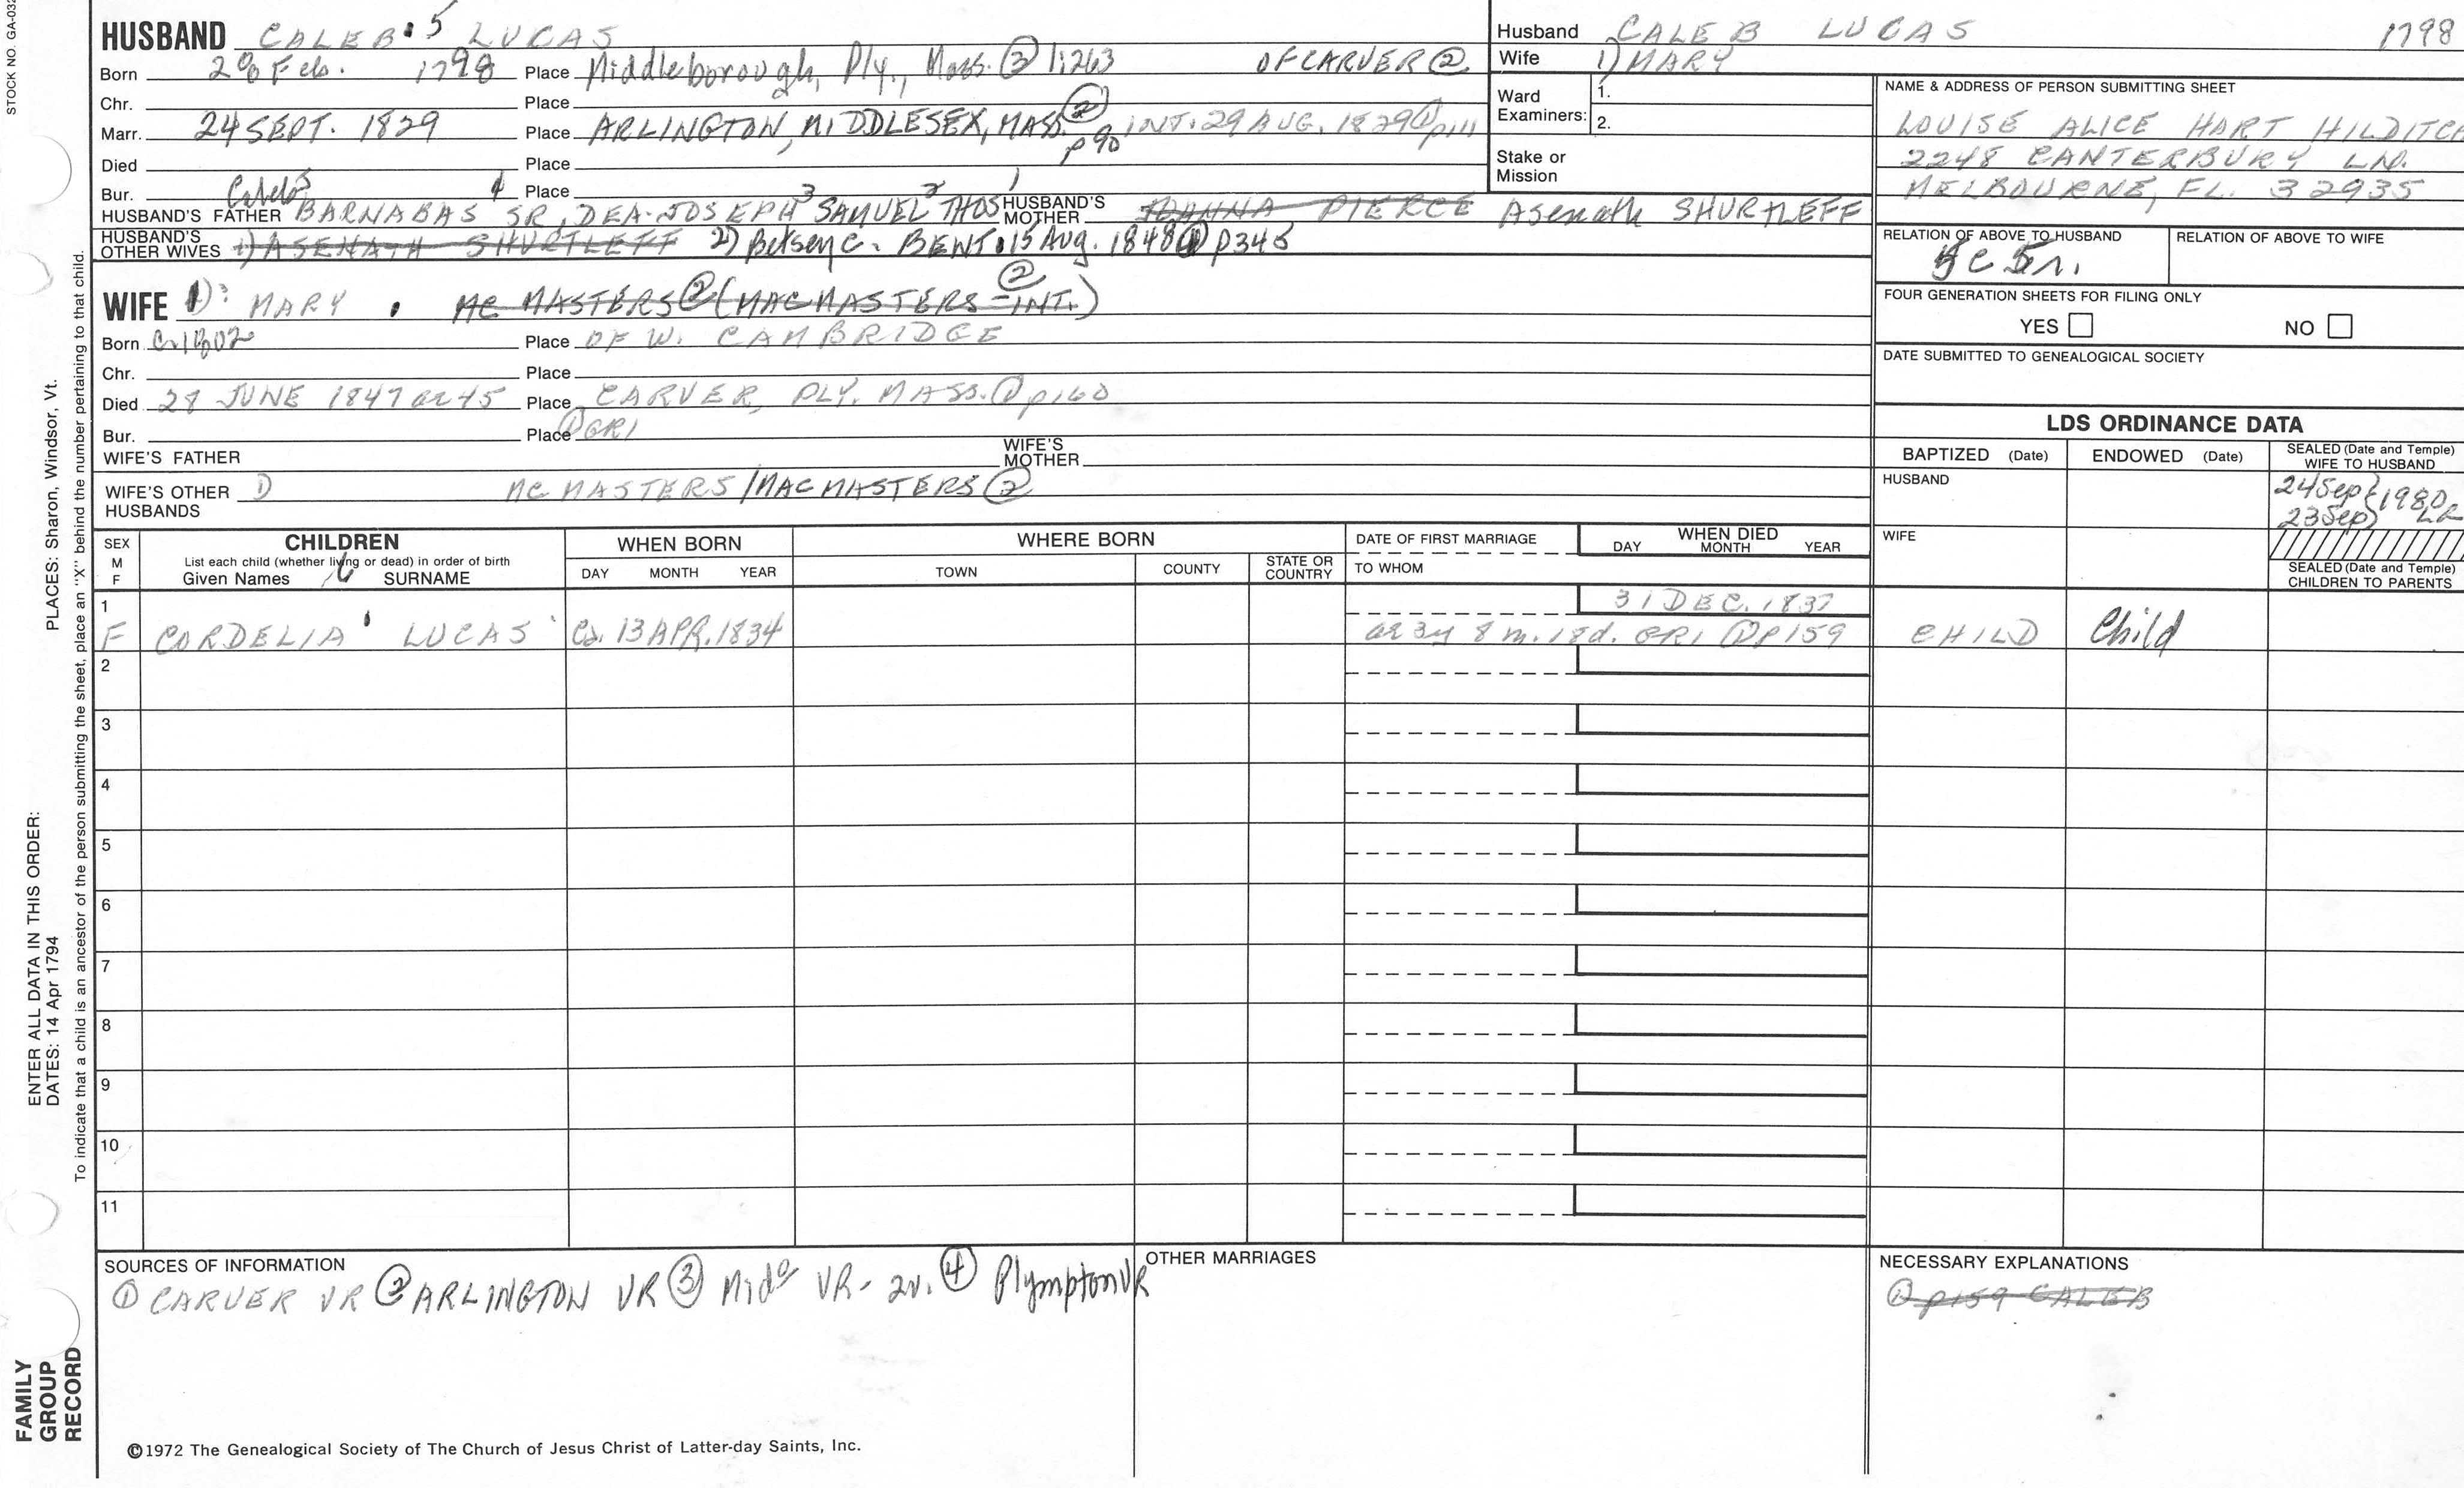 STOCK NO. GA-032
HUSBAND CALEB 5 LUCAS
Born Feb. 1798 Place Middleborough, Ply., Mass. ③ 1:263 OF CARVER ②
Chr. Place
Marr. 24 SEPT. 1829 Place ARLINGTON, MIDDLESEX, MASS. ② p 90 INT. 29 AUG. 1829 ① p111
Died Place
Bur. Place
HUSBAND'S FATHER Caleb BARNABAS SR, DEA. JOSEPH 3 SAMUEL 2 THOS 1 HUSBAND'S MOTHER JOANNA PIERCE Asenath SHURTLEFF
HUSBAND'S OTHER WIVES 1) ASENATH SHURTLEFF 2) Betsey C. BENT 15 Aug. 1848 ① p345
WIFE 1) MARY MC MASTERS ② (MACMASTERS - INT.) ②
Born c.1802 Place OF W. CAMBRIDGE
Chr. Place
Died 28 JUNE 1847 ae 45 Place CARVER, PLY. MASS. ① p160
Bur. Place ① GR1
WIFE'S FATHER WIFE'S MOTHER
WIFE'S OTHER HUSBANDS MC MASTERS/MACMASTERS ②
Husband CALEB LUCAS 1798
Wife 1) MARY
Ward Examiners: 1.
2.
Stake or Mission
NAME & ADDRESS OF PERSON SUBMITTING SHEET
LOUISE ALICE HART HILDITCH
2248 CANTERBURY LN.
MELBOURNE, FL. 32935
RELATION OF ABOVE TO HUSBAND RELATION OF ABOVE TO WIFE
FOUR GENERATION SHEETS FOR FILING ONLY
YES NO
DATE SUBMITTED TO GENEALOGICAL SOCIETY
LDS ORDINANCE DATA
BAPTIZED (Date) ENDOWED (Date) SEALED (Date and Temple) WIFE TO HUSBAND
HUSBAND 24 Sep 23 Sep 1980 LR
WIFE
SEALED (Date and Temple) CHILDREN TO PARENTS
SEX M F
CHILDREN
List each child (whether living or dead) in order of birth
Given Names 6 SURNAME
WHEN BORN
DAY MONTH YEAR
WHERE BORN
TOWN COUNTY STATE OR COUNTRY
DATE OF FIRST MARRIAGE
TO WHOM
WHEN DIED
DAY MONTH YEAR
1 31 DEC. 1837
F CORDELIA LUCAS Ca. 13 APR. 1834 ae 3y 8 m. 18d. GR1 ① p159 CHILD Child
2
3
4
5
6
7
8
9
10
11
SOURCES OF INFORMATION
① CARVER VR ② ARLINGTON VR ③ Mido VR - 2v. ④ Plympton VR
OTHER MARRIAGES
NECESSARY EXPLANATIONS
① p159 CALEB
©1972 The Genealogical Society of The Church of Jesus Christ of Latter-day Saints, Inc.
FAMILY GROUP RECORD
ENTER ALL DATA IN THIS ORDER:
DATES: 14 Apr 1794
PLACES: Sharon, Windsor, Vt.
To indicate that a child is an ancestor of the person submitting the sheet, place an "X" behind the number pertaining to that child.